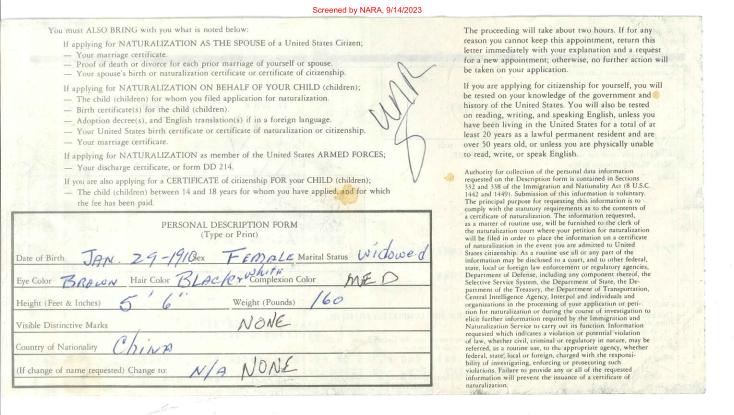 Screened by NARA, 9/14/2023
You must ALSO BRING with you what is noted below:
If applying for NATURALIZATION AS THE SPOUSE of a United States Citizen;
— Your marriage certificate.
— Proof of death or divorce for each prior marriage of yourself or spouse.
— Your spouse's birth or naturalization certificate or certificate of citizenship.
If applying for NATURALIZATION ON BEHALF OF YOUR CHILD (children);
— The child (children) for whom you filed application for naturalization.
— Birth certificate(s) for the child (children).
— Adoption decree(s), and English translation(s) if in a foreign language.
— Your United States birth certificate or certificate of naturalization or citizenship.
— Your marriage certificate.
If applying for NATURALIZATION as member of the United States ARMED FORCES;
— Your discharge certificate, or form DD 214.
If you are also applying for a CERTIFICATE of citizenship FOR your CHILD (children);
— The child (children) between 14 and 18 years for whom you have applied, and for which
the fee has been paid.
PERSONAL DESCRIPTION FORM
(Type or Print)
Date of Birth JAN. 29-1918 Sex FEMALE Marital Status widowed
Eye Color BROWN Hair Color BLACK & white Complexion Color MED
Height (Feet & Inches) 5' 6" Weight (Pounds) 160
Visible Distinctive Marks NONE
Country of Nationality China
(If change of name requested) Change to: N/A NONE
The proceeding will take about two hours. If for any
reason you cannot keep this appointment, return this
letter immediately with your explanation and a request
for a new appointment; otherwise, no further action will
be taken on your application.
If you are applying for citizenship for yourself, you will
be tested on your knowledge of the government and
history of the United States. You will also be tested
on reading, writing, and speaking English, unless you
have been living in the United States for a total of at
least 20 years as a lawful permanent resident and are
over 50 years old, or unless you are physically unable
to read, write, or speak English.
Authority for collection of the personal data information
requested on the Description form is contained in Sections
332 and 338 of the Immigration and Nationality Act (8 U.S.C.
1442 and 1449). Submission of this information is voluntary.
The principal purpose for requesting this information is to
comply with the statutory requirements as to the contents of
a certificate of naturalization. The information requested,
as a matter of routine use, will be furnished to the clerk of
the naturalization court where your petition for naturalization
will be filed in order to place the information on a certificate
of naturalization in the event you are admitted to United
States citizenship. As a routine use all or any part of the
information may be disclosed to a court, and to other federal,
state, local or foreign law enforcement or regulatory agencies,
Department of Defense, including any component thereof, the
Selective Service System, the Department of State, the De-
partment of the Treasury, the Department of Transportation,
Central Intelligence Agency, Interpol and individuals and
organizations in the processing of your application or peti-
tion for naturalization or during the course of investigation to
elicit further information required by the Immigration and
Naturalization Service to carry out its function. Information
requested which indicates a violation or potential violation
of law, whether civil, criminal or regulatory in nature, may be
referred, as a routine use, to the appropriate agency, whether
federal, state, local or foreign, charged with the responsi-
bility of investigating, enforcing or prosecuting such
violations. Failure to provide any or all of the requested
information will prevent the issuance of a certificate of
naturalization.